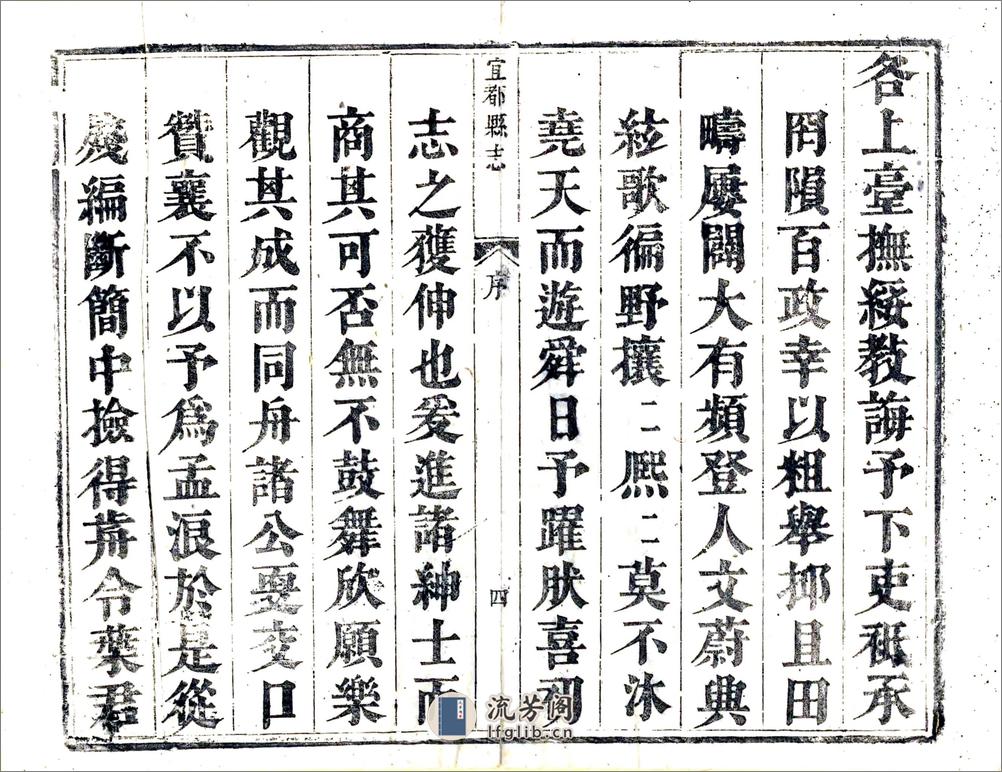 各上臺撫綏教誨予下吏祗承
罔隕百政幸以粗舉抑且田
疇屢闢大有頻登人文蔚典
絃歌徧野攘〻熙〻莫不沐
堯天而遊舜日予躍肰喜初
宜都縣志
序
四
志之獲伸也爰進諸紳士而
商其可否無不鼓舞欣願樂
觀其成而同舟諸公更交口
贊襄不以予為孟浪於是從
殘編斷簡中撿得前令葉君
流芳阁
lfglib.cn